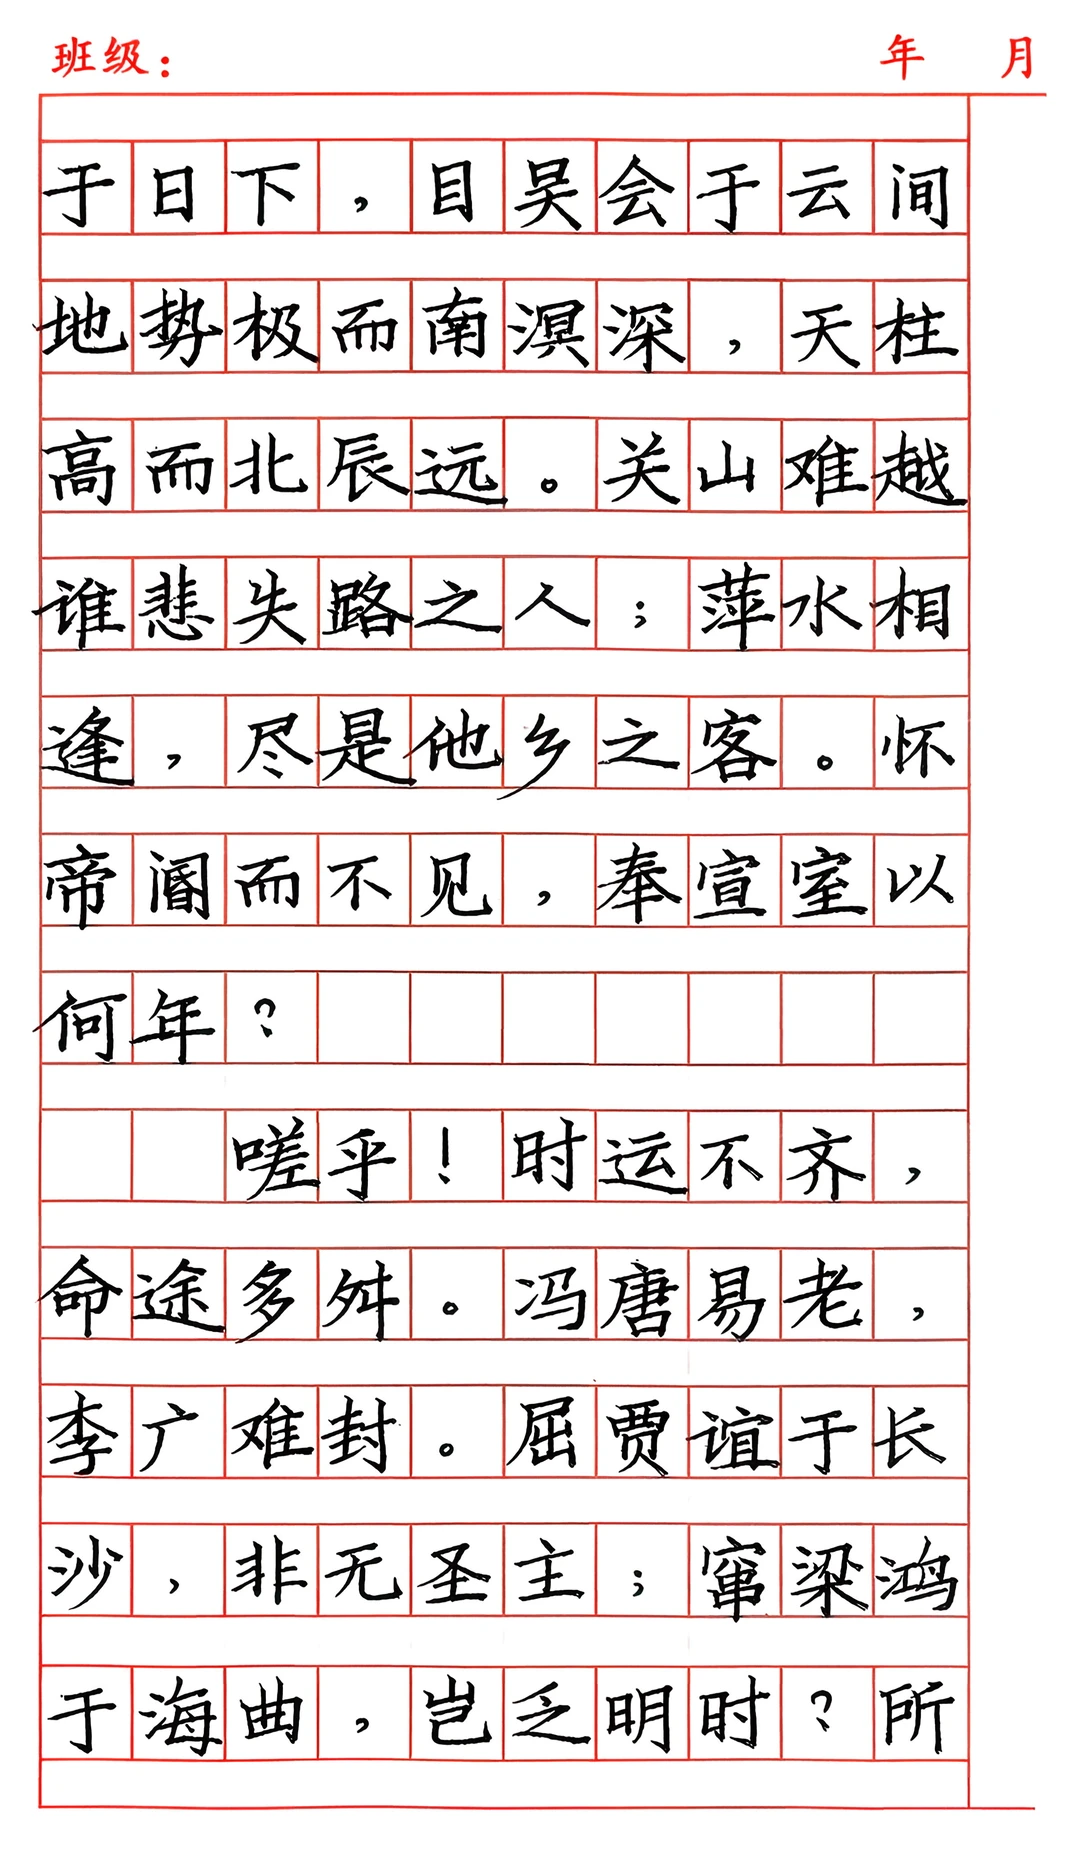 班级： 年 月
于日下，目吴会于云间
地势极而南溟深，天柱
高而北辰远。关山难越
谁悲失路之人；萍水相
逢，尽是他乡之客。怀
帝阍而不见，奉宣室以
何年？
嗟乎！时运不齐，
命途多舛。冯唐易老，
李广难封。屈贾谊于长
沙，非无圣主；窜梁鸿
于海曲，岂乏明时？所